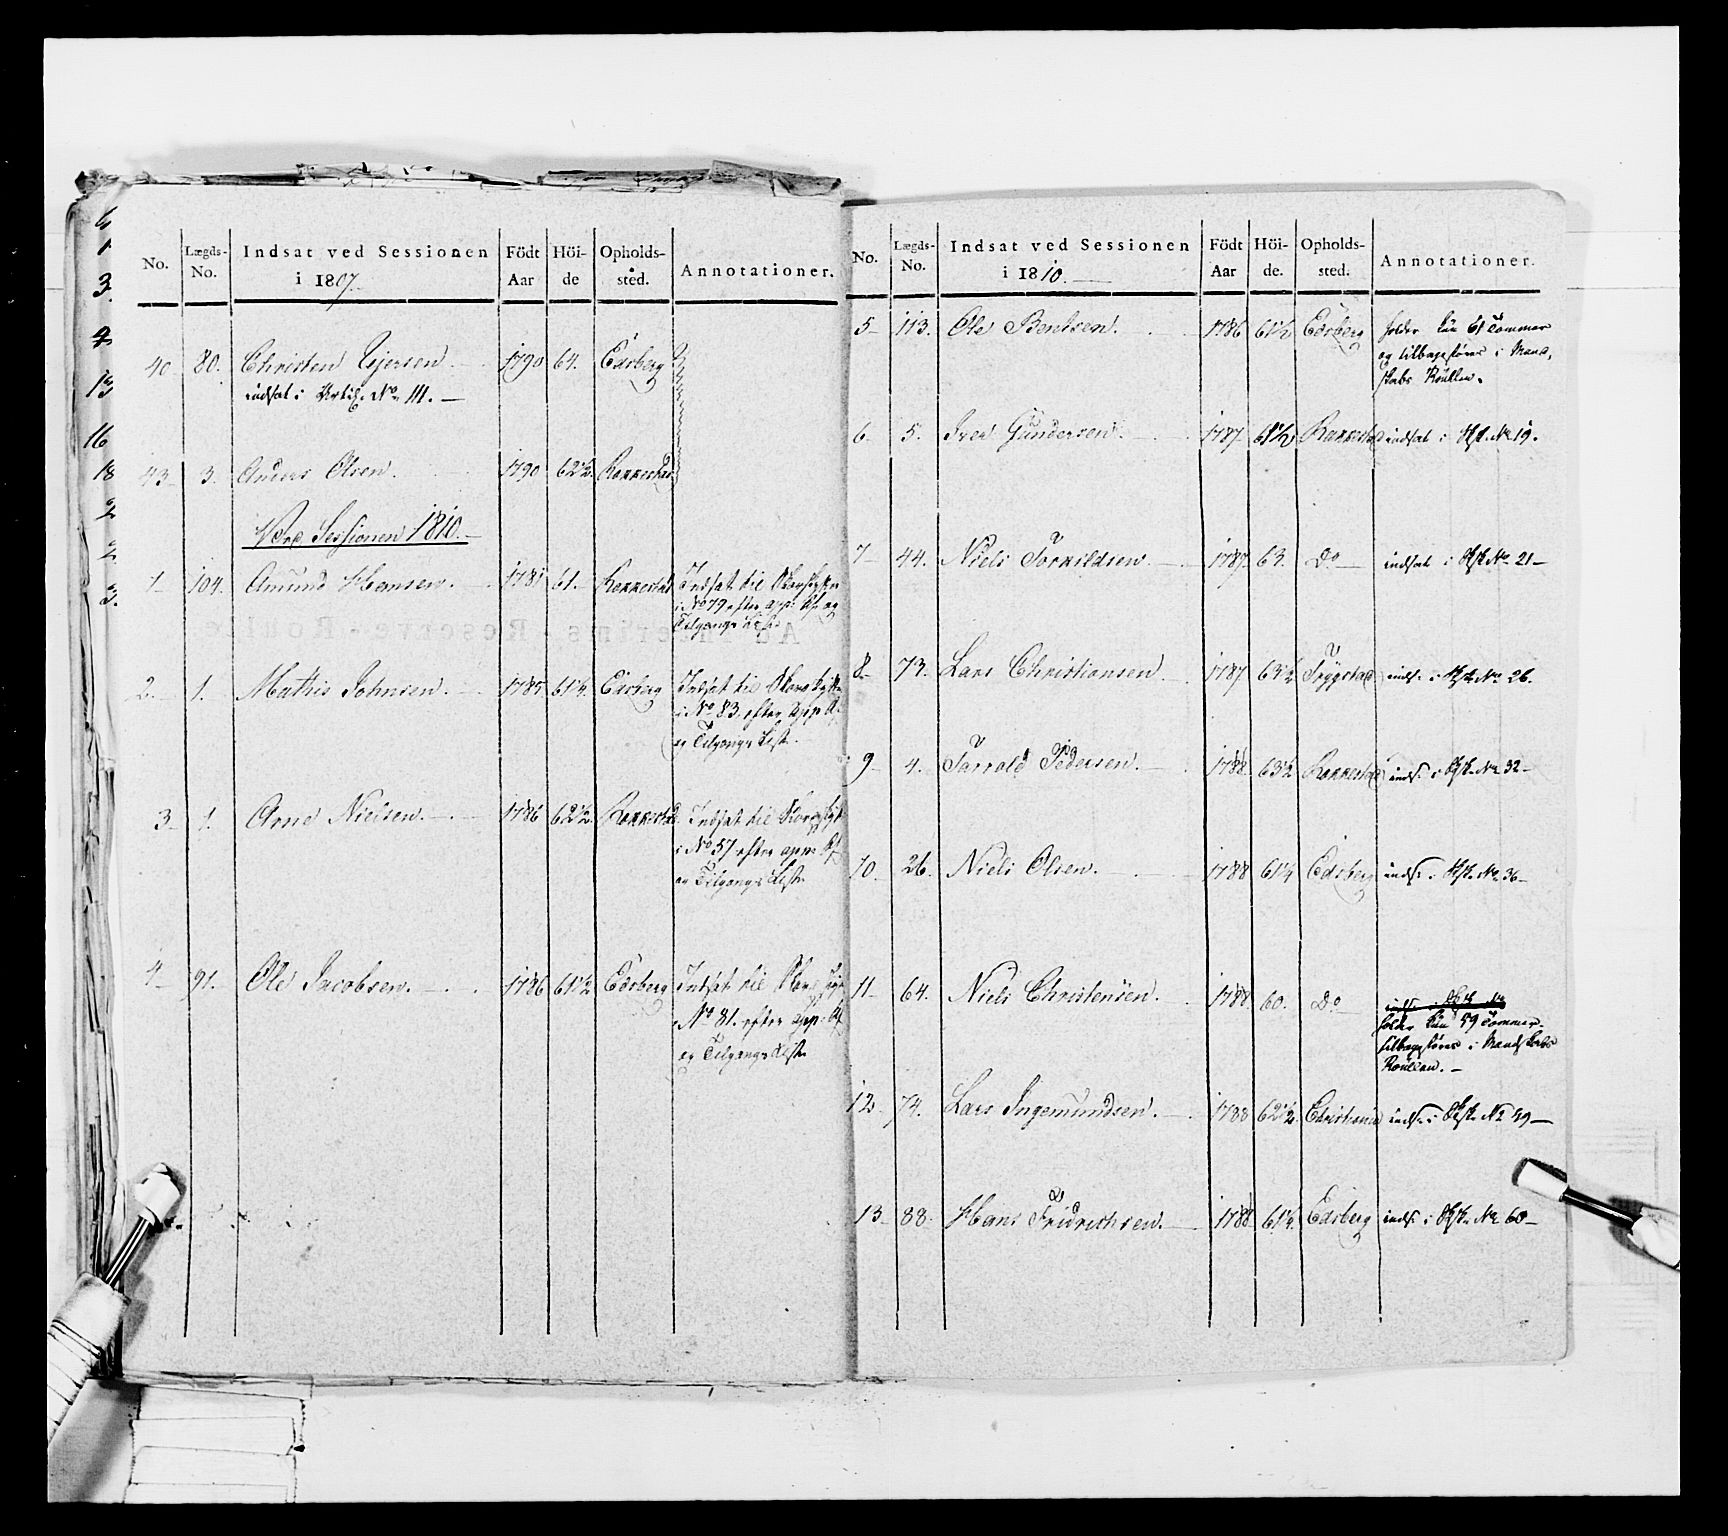 No. Lægds-No. Indsat ved Sessionen i 1807. Födt Aar Höi-de Opholds-sted. Annotationer.
40 80. Christen Ejersen. 1790 64. Edsberg
indsat i No. 111.
43 3. Anders Olsen. 1790 62½ Rakkestad
Ved Sessionen 1810.
1 104. Amund Hansen. 1781 61. Rakkestad Indsat til
i No 79 efter app:
Tilgangs Liste
2. 1. Mathis Johnsen. 1785 61¼ Edsberg Indsat til
i No 83 efter app:
og Tilgangs List.
3 1. Arne Nielsen. 1786 62½ Rakkestad Indsat til
i No 57 efter app:
og Tilgangs List
4 91. Ole Jacobsen. 1786 61½ Edsberg Indsat til
No 81. efter app:
og Tilgangs List
No. Lægds-No. Indsat ved Sessionen i 1810. Födt Aar Höi-de. Opholds-sted. Annotationer.
5 113. Ole Bentsen. 1786 61½ Edsberg holder kun 61 Tommer
og tilbageføres i Mand,
skabs Roullen.
6. 5. Iver Gundersen. 1787 61½ Rakkestad indsat i No 19.
7 44. Niels Torkildsen. 1787. 63. Do indsat i No 21
8 73. Lars Christiansen. 1787 63½ Trygstad inds. i No 26.
9 4. Pedersen. 1788 63½ Rakkestad inds. i No 32
10. 26. Niels Olsen. 1788 61¼ Edsberg inds. i No 36
11 64. Niels Christensen. 1788. 60. Do inds. i No
holder kun 59 Tommer.
tilbageføres i Mandskabs
Roullen.
12. 74. Lars Ingemundsen. 1788 62½ Christiania inds. i No 59
13 88. Hans Fridrichsen. 1788 61¼ Edsberg inds. i No 60